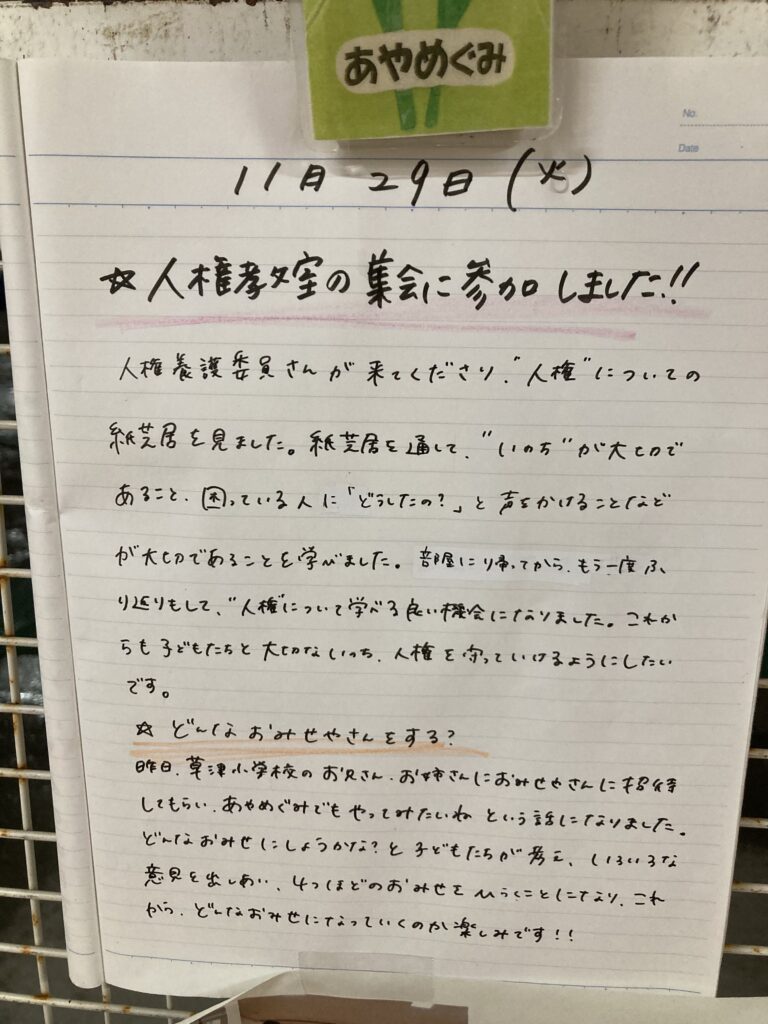 あやめぐみ
No.
Date
11月29日(火)
☆人権教室の集会に参加しました!!
人権養護委員さんが来てくださり、"人権"についての
紙芝居を見ました。紙芝居を通して、"いのち"が大切で
あること、困っている人に「どうしたの?」と声をかけることなど
が大切であることを学べました。部屋に帰ってから、もう一度ふ
り返りもして、"人権"について学べる良い機会になりました。これか
らも子どもたちと大切ないのち、人権を守っていけるようにしたい
です。
☆どんなおみせやさんをする?
昨日、草津小学校のお兄さん、お姉さんにおみせやさんに招待
してもらい、あやめぐみでもやってみたいね という話になりました。
どんなおみせにしようかな?と子どもたちが考え、いろいろな
意見を出しあい、4つほどのおみせをひらくことになり、これ
から、どんなおみせになっていくのか楽しみです!!